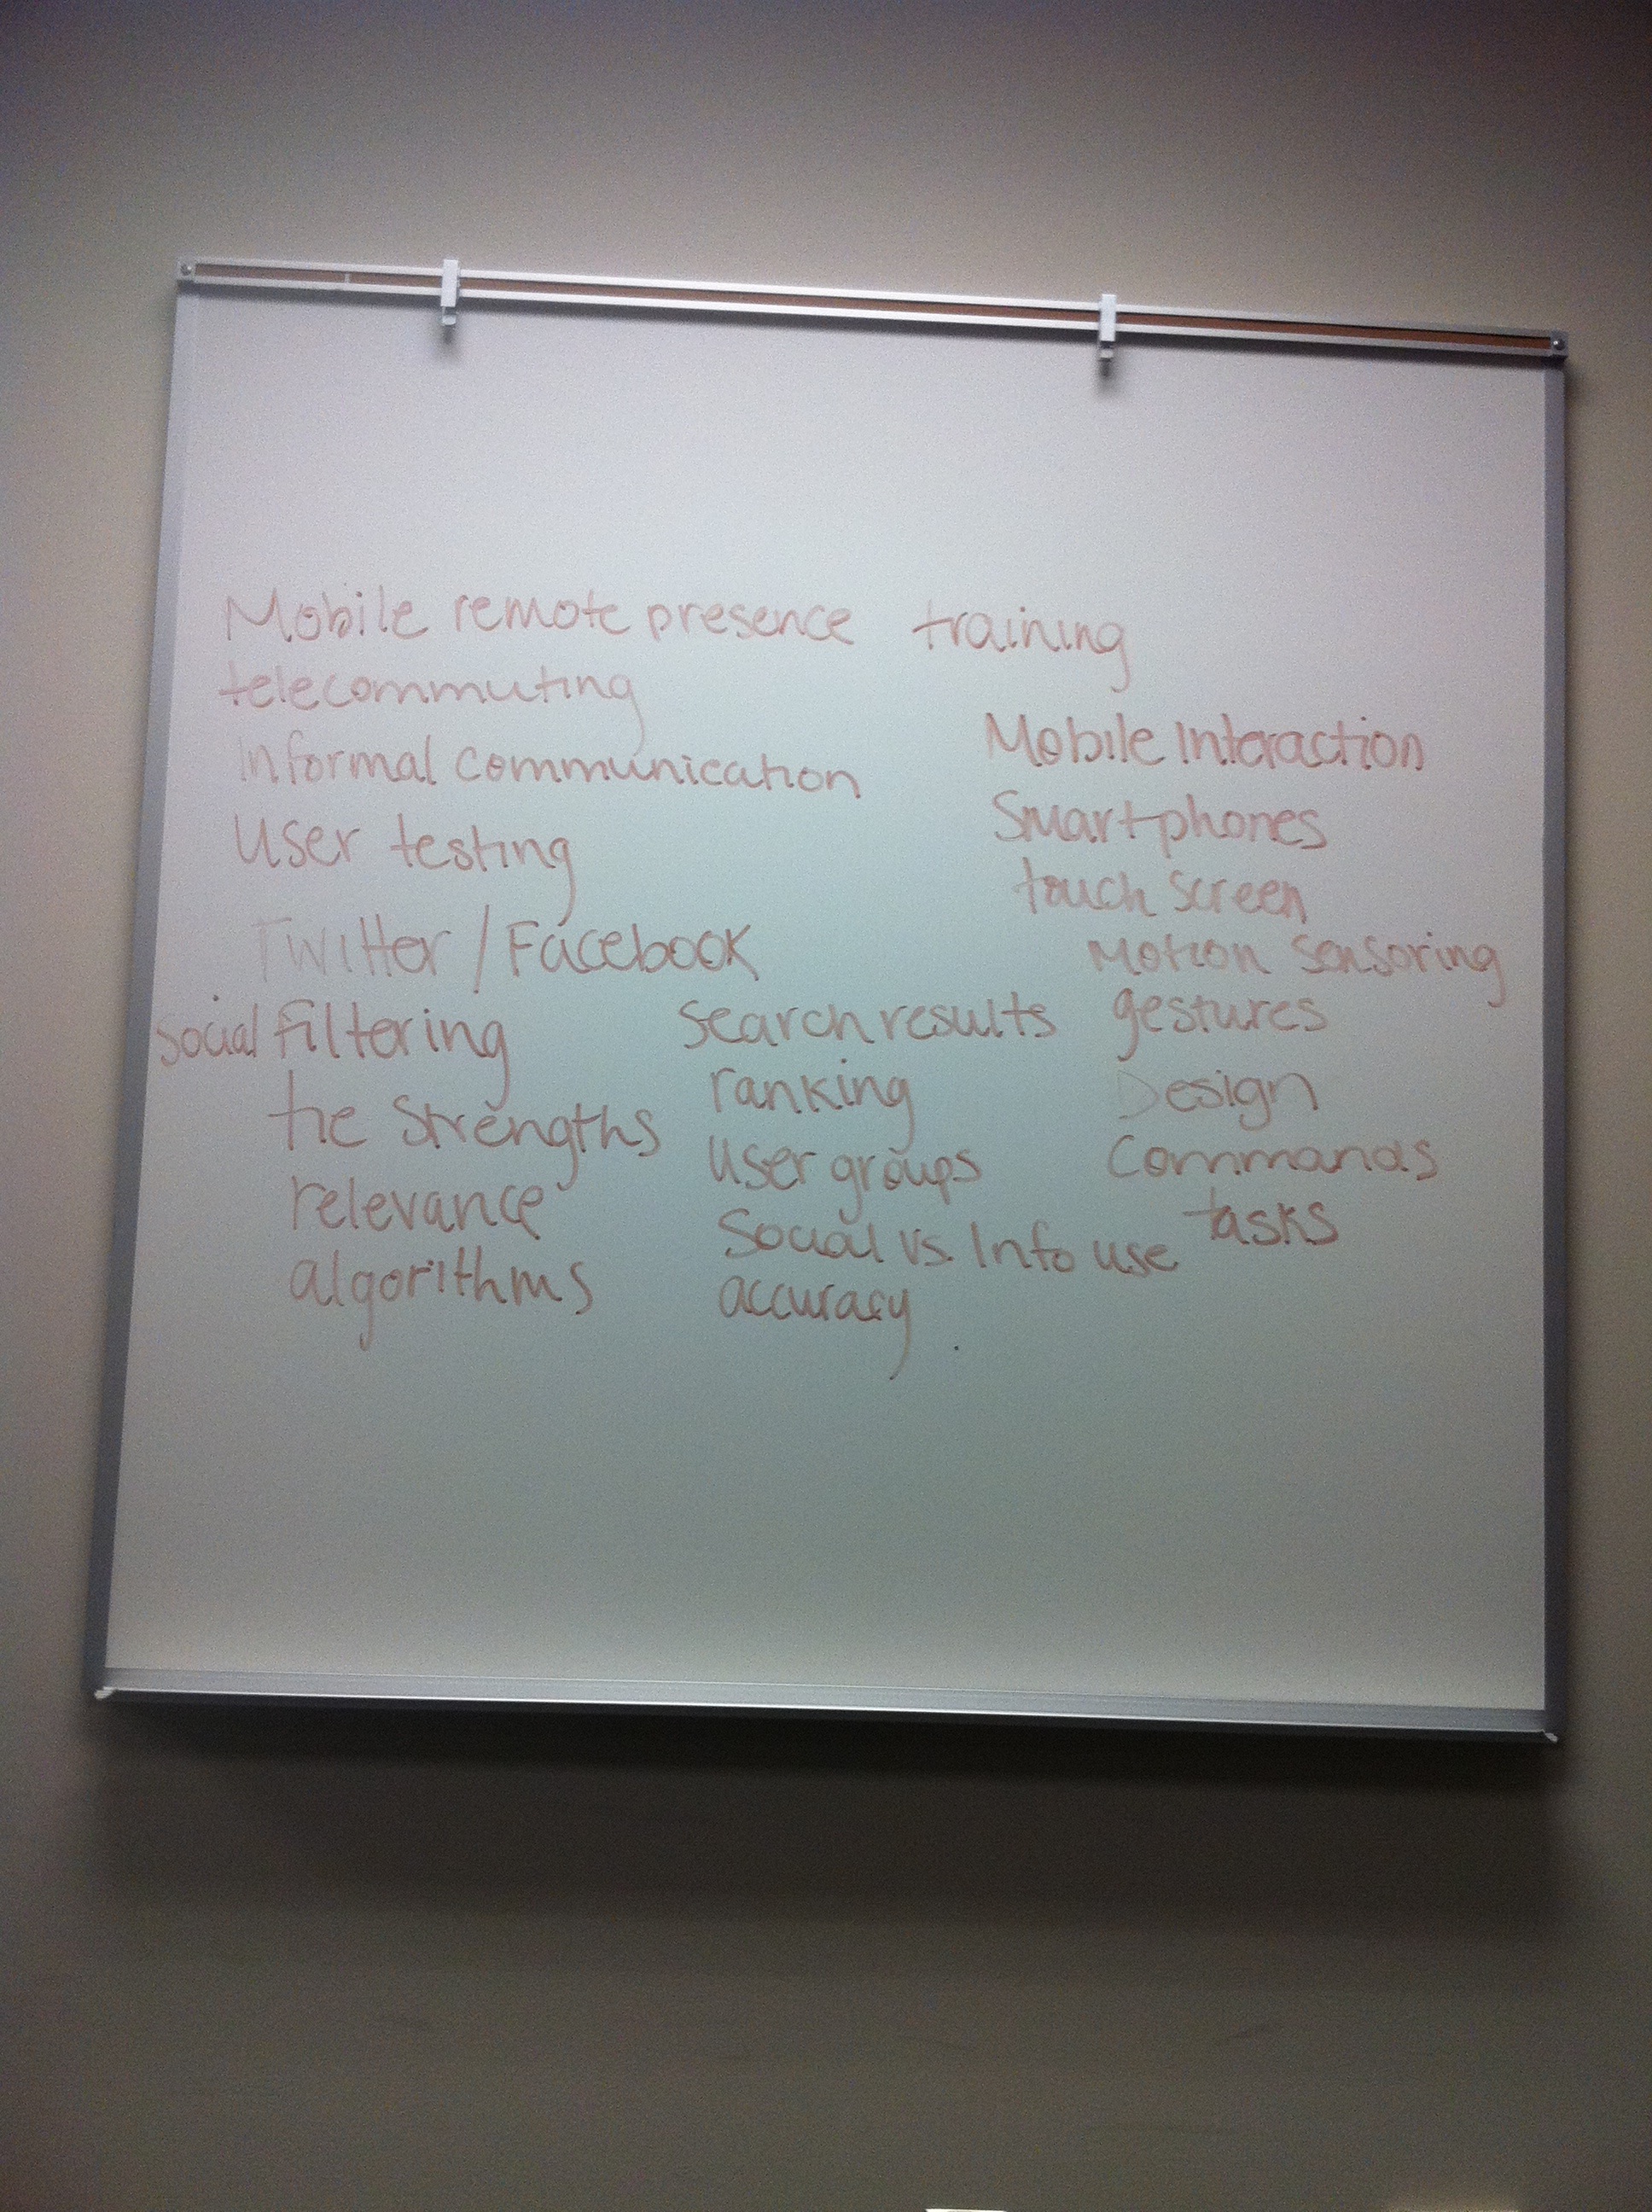 Mobile remote presence training
telecommuting
Informal communication
User testing
Twitter / Facebook
social filtering
tie strengths
relevance
algorithms
search results
ranking
user groups
Social vs. Info use
accuracy
Mobile Interaction
Smartphones
touch screen
Motion sensoring
gestures
Design
Commands
tasks